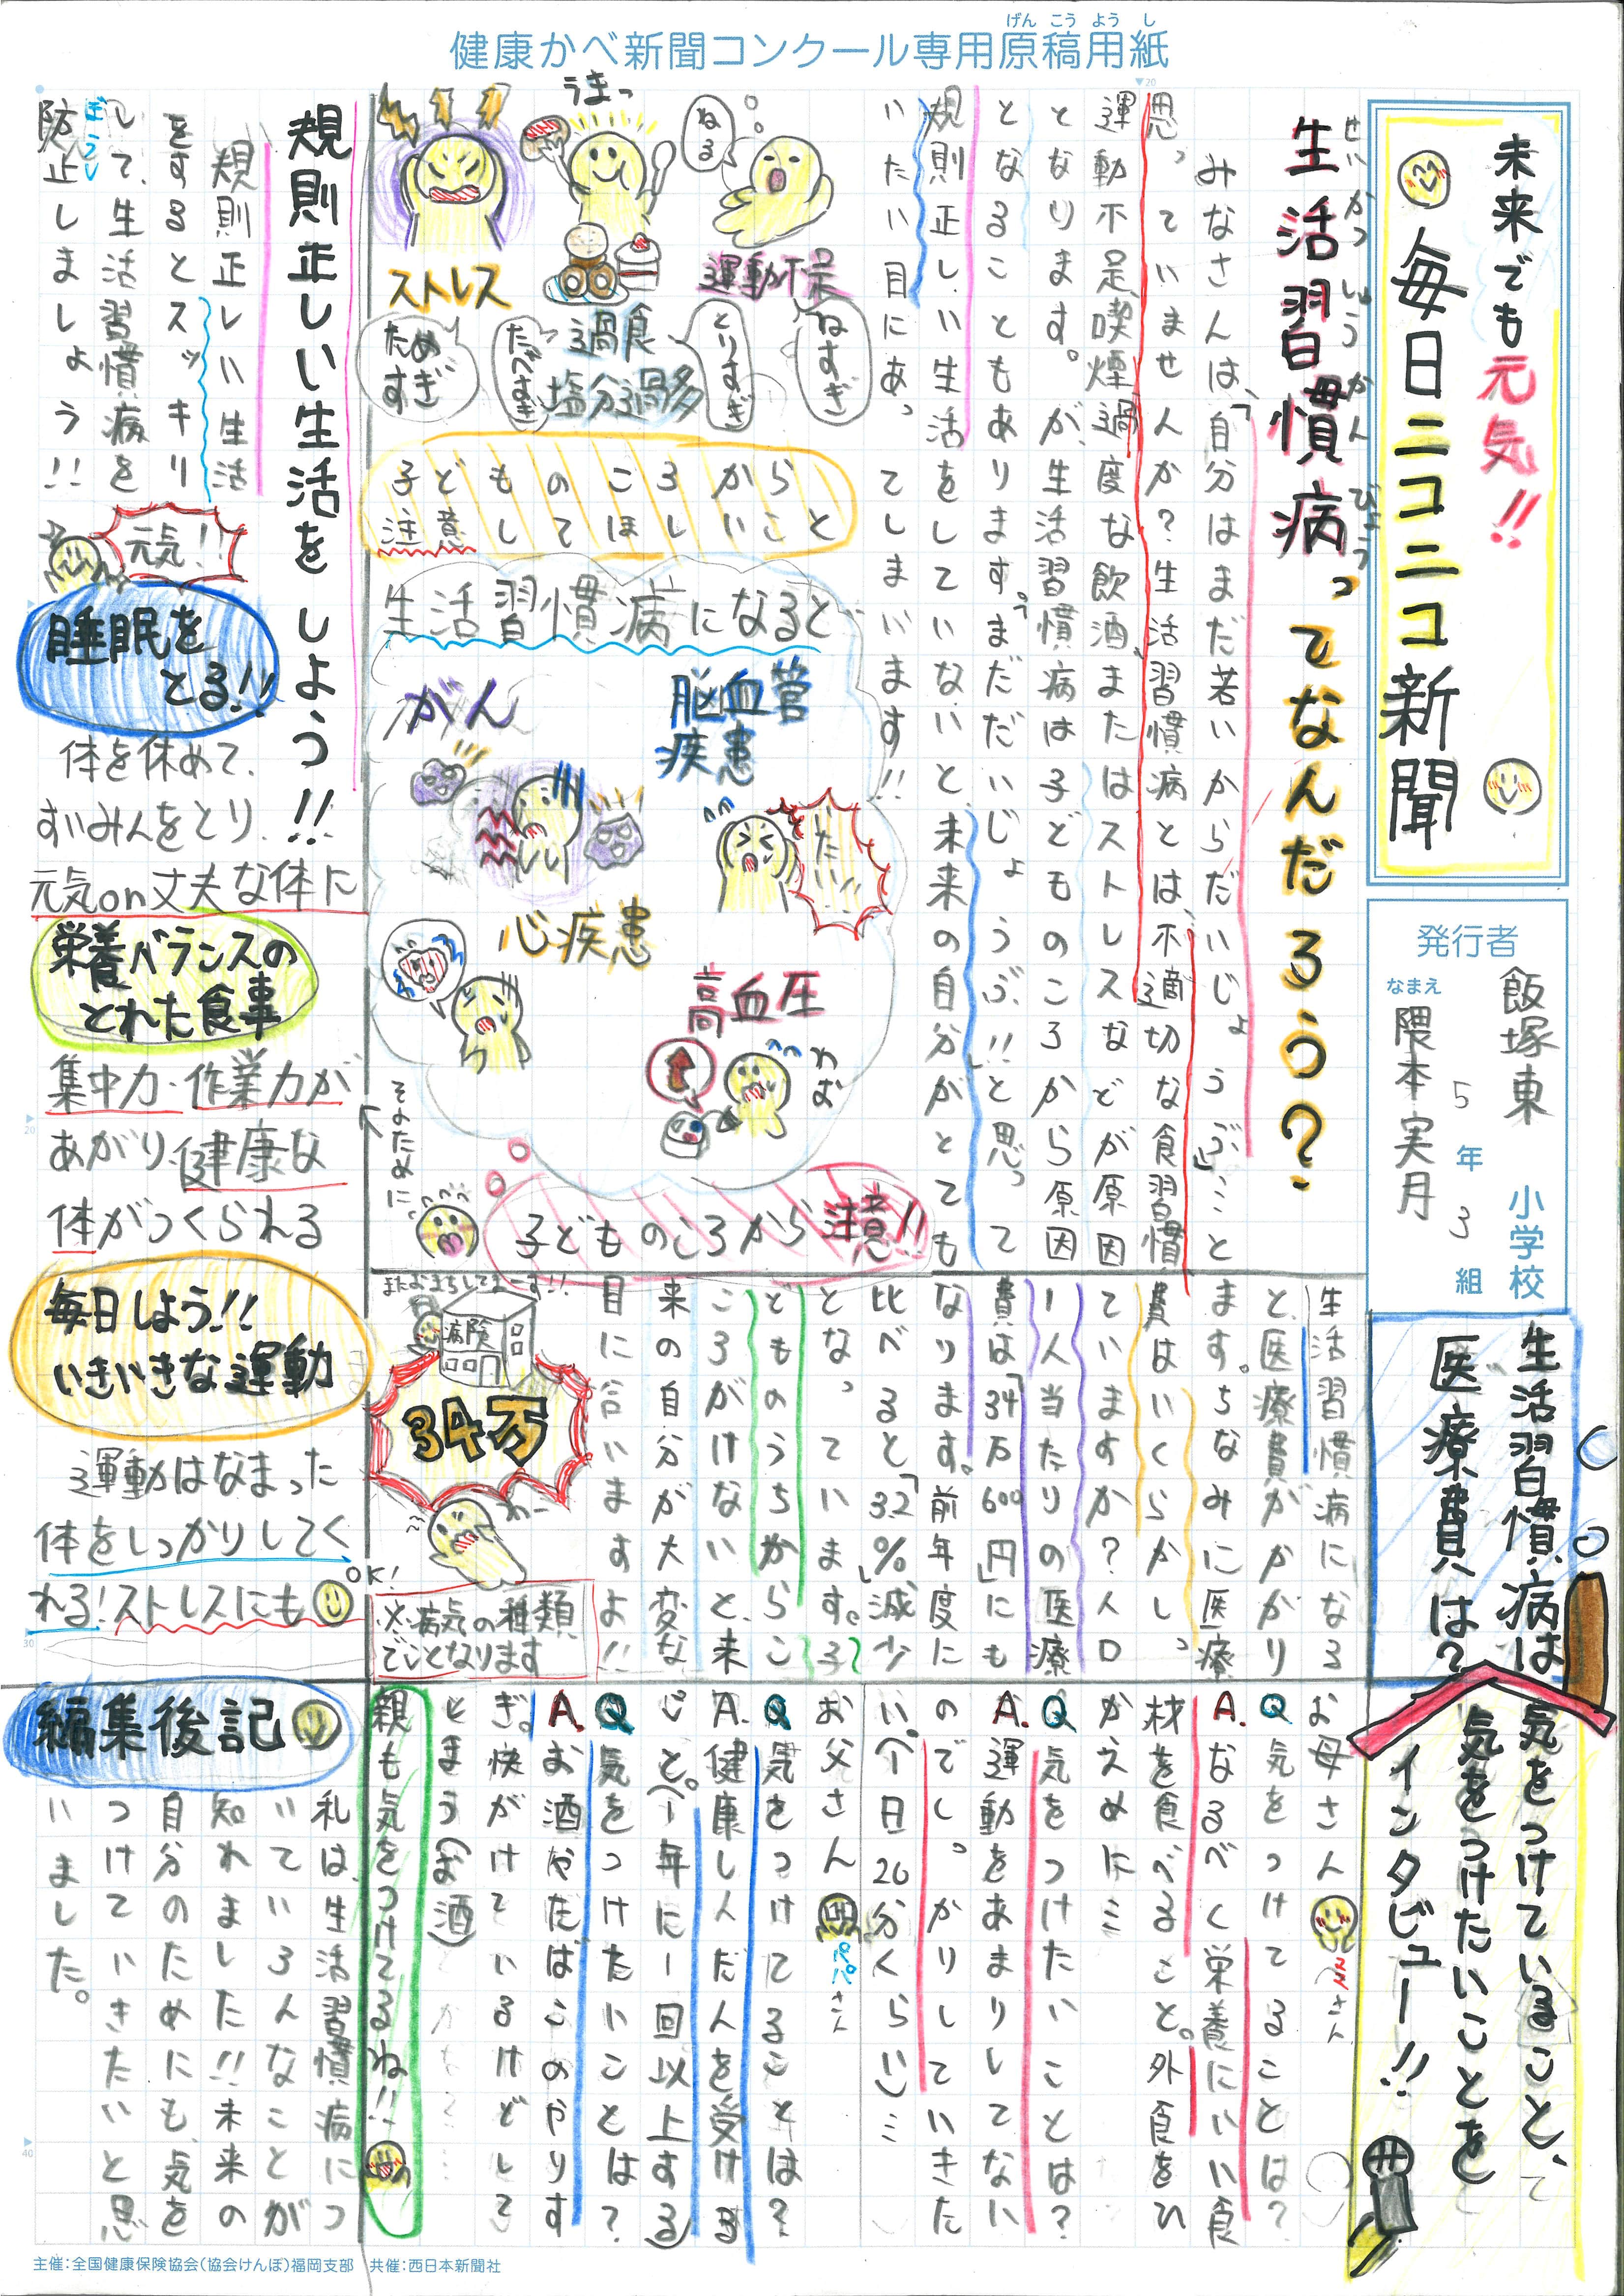 健康かべ新聞コンクール専用原稿用紙
げんこうようし
未来でも元気!!
毎日ニコニコ新聞
発行者
飯塚東 小学校
5年3組
なまえ
隈本実月
せいかつしゅうかんびょう
生活習慣病ってなんだろう?
みなさんは、「自分はまだ若いからだいじょうぶ」…と
思っていませんか?生活習慣病とは、不適切な食習慣、
運動不足、喫煙、過度な飲酒、またはストレスなどが原因
となります。が、生活習慣病は子どものころから原因
となることもあります。「まだだいじょうぶ!!」と思って
規則正しい生活をしていないと、未来の自分がとても
いたい目にあってしまいます!!
ねる
運動不足
ねすぎ
うまっ
過食
塩分過多
とりすぎ
たべすぎ
ストレス
ためすぎ
子どものころから
注意してほしいこと
生活習慣病になると
脳血管
疾患
がん
心疾患
高血圧
わお
子どものころから注意!!
そのために、
生活習慣病は
医療費は?
生活習慣病になる
と、医療費がかかり
ます。ちなみに医療
費はいくらかかし
っていますか?人口
1人当たりの医療
費は「34万600円」にも
なります。前年度に
比べると「3.2%」減少
となっています。子
どものうちからこ
ころがけないと、未
来の自分が大変な
目に合いますよ!!
またおまちしてまーす!!
病院
34万
わー
※病気の種類
でことなります
気をつけていること、
気をつけたいことを
インタビュー!!
お母さん
ママさん
Q 気をつけてることは?
A. なるべく栄養にいい食
材を食べること。外食をひ
かえめに…
Q 気をつけたいことは?
A. 運動をあまりしてない
のでしっかりしていきた
い。(一日20分くらい)…
お父さん
パパさん
Q 気をつけてることは?
A. 健康しんだんを受ける
こと。(一年に一回以上する)
Q 気をつけたいことは?
A. お酒やたばこのやりす
ぎ。快がけているけどして
しまう(お酒)
親も気をつけてるね!!
規則正しい生活をしよう!!
規則正しい生活
をするとスッキリ
して、生活習慣病を
ぼうし
防止しましょう!!
元気!!
睡眠を
とる!!
体を休めて、
すいみんをとり、
元気on丈夫な体に
栄養バランスの
とれた食事
集中力・作業力が
あがり、健康な
体がつくられる
毎日しよう!!
いきいきな運動
運動はなまった
体をしっかりしてく
れる!ストレスにも
OK!
編集後記
私は、生活習慣病につ
いていろんなことが
知れました!!未来の
自分のためにも、気を
つけていきたいと思
いました。
主催:全国健康保険協会(協会けんぽ)福岡支部 共催:西日本新聞社